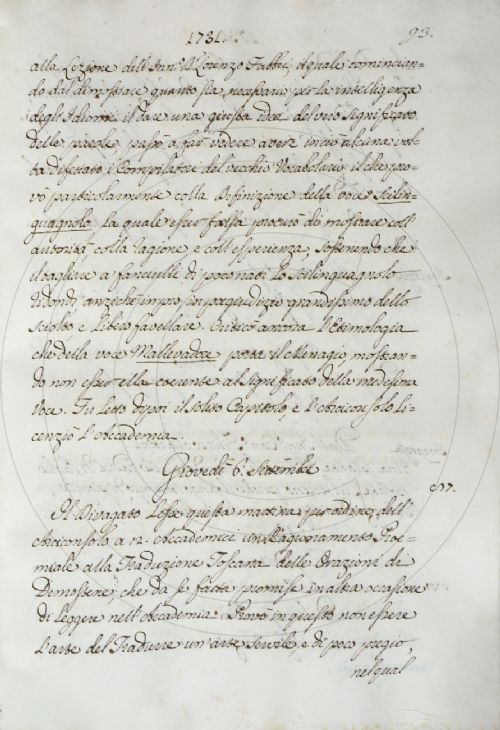 1731.
93.
alla Lezione dell' Inn. Lorenzo Fabbri, il quale comincian=
do dal dimostrare quanto sia necessario per la intelligenza
degl'Idiomi il dare una giusta idea del vero significato
delle parole, passò a far vedere avere in ciò alcuna vol=
ta difettato i Compilatori del vecchio Vocabolario, il che pro=
vò particolarmente colla Definizione della voce Scilin=
guagnolo, la quale esser falsa procurò di mostrare coll'
autorità, colla ragione, e coll'esperienza, sostenendo che
il tagliare a fanciulli di poco nati lo Scilinguagnolo
ridondi anzichè in pro in pregiudizio grandissimo dello
sciolto e libero favellare. Criticò ancora l'Etimologia
che della voce Mallevadore porta il Menagio, mostran=
do non esser ella coerente al significato della medesima
voce. Fu letto dipoi il solito Capitolo, e l'Arciconsolo li=
cenziò l'Accademia.
Giovedì 6. Settembre
Il Divagato lesse questa mattina per ordine dell'
Arciconsolo a 12. Accademici un Ragionamento Proe=
miale alla Traduzione Toscana delle Orazioni di
Demostene, che da se fatta promise in altra occasione
di leggere nell'Accademia. Provò in questo non essere
l'arte del Tradurre un'arte servile, e di poco pregio,
nel qual